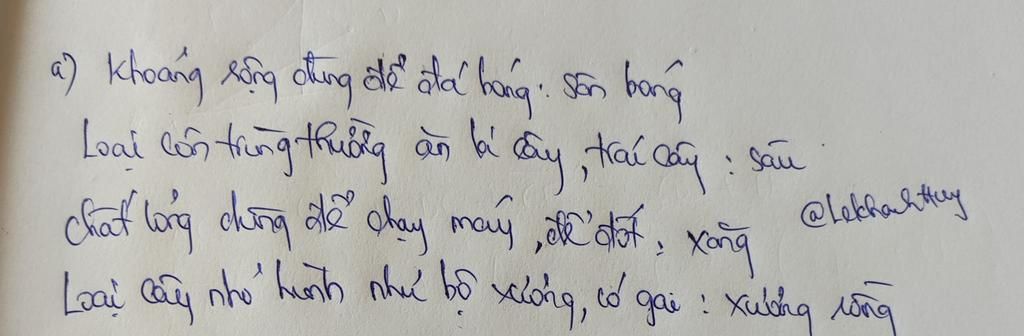 a) Khoảng rộng dùng để đá bóng: sân bóng
Loại côn trùng thường ăn lá cây, trái cây: sâu
chất lỏng dùng để chạy máy, để đốt: xăng
@LeKhanhHuy
Loại cây nhỏ hình như bộ xương, có gai: xương rồng